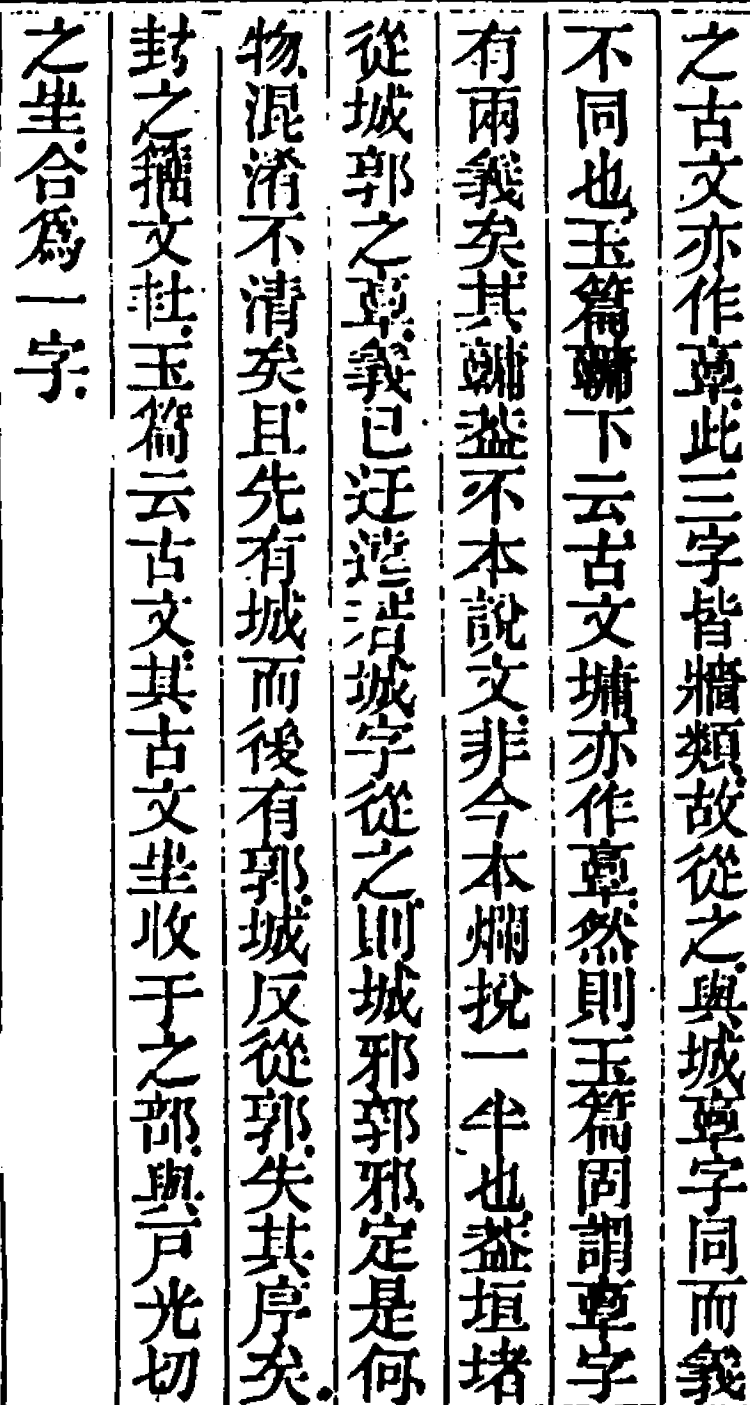 之古文亦作𩫖此三字皆牆類故從之與城𩫖字同而義
不同也玉篇𩫨下云古文墉亦作𩫖然則玉篇固謂𩫖字
有兩義矣其𩫨蓋不本說文非今本爛挩一半也蓋垣堵
從城郭之𩫖義已迂遠若城字從之則城邪郭邪定是何
物混淆不清矣且先有城而後有郭城反從郭失其序矣
封之籀文𡉚玉篇云古文其古文㞷收于之部與戸光切
之㞷合爲一字